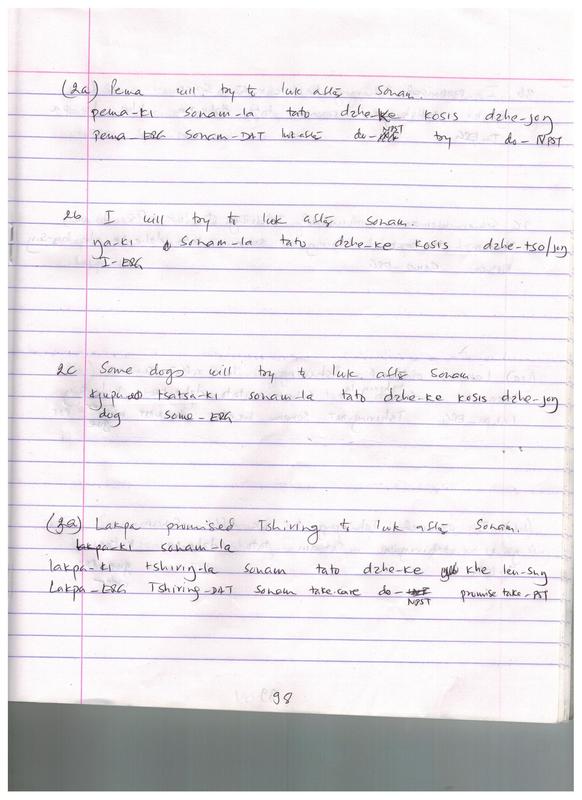 (2a) Pema will try to luk after Sonam.
pema-ki sonam-la tato dzhe-ke kosis dzhe-joŋ
pema-ERG Sonam-DAT luk after do-NPST try do-NPST
2b I will try to luk after Sonam.
ŋa-ki sonam-la tato dzhe-ke kosis dzhe-tso/joŋ
I-ERG
2c Some dogs will try to luk after Sonam.
kjupu tsatsa-ki sonam-la tato dzhe-ke kosis dzhe-joŋ
dog some-ERG
(3a) Lakpa promised Tshiring to luk after Sonam.
lakpa-ki sonam-la
lakpa-ki tshiriŋ-la sonam tato dzhe-ke khe len-suŋ
Lakpa-ERG Tshiring-DAT Sonam take.care do-NPST promise take-PST
98